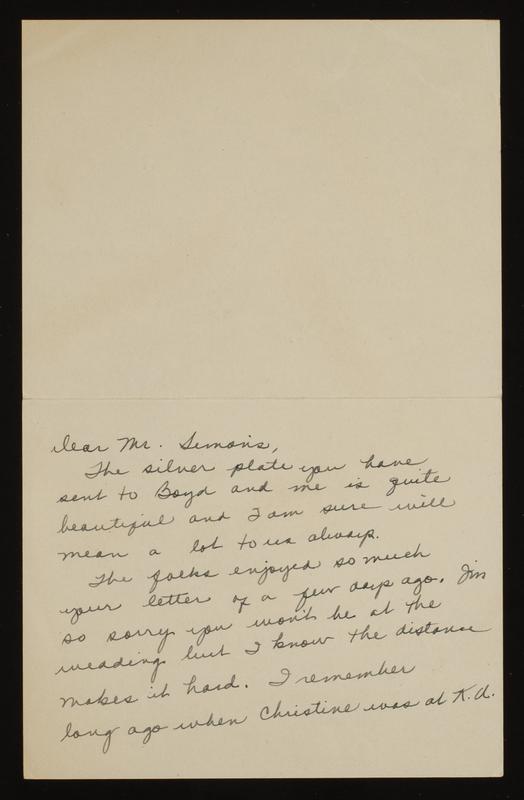 Dear Mr. Simons,
The silver plate you have
sent to Boyd and me is quite
beautiful and I am sure will
mean a lot to us always.
The folks enjoyed so much
your letter of a few days ago. I'm
so sorry you won't be at the
wedding but I know the distance
makes it hard. I remember
long ago when Christine was at K.U.